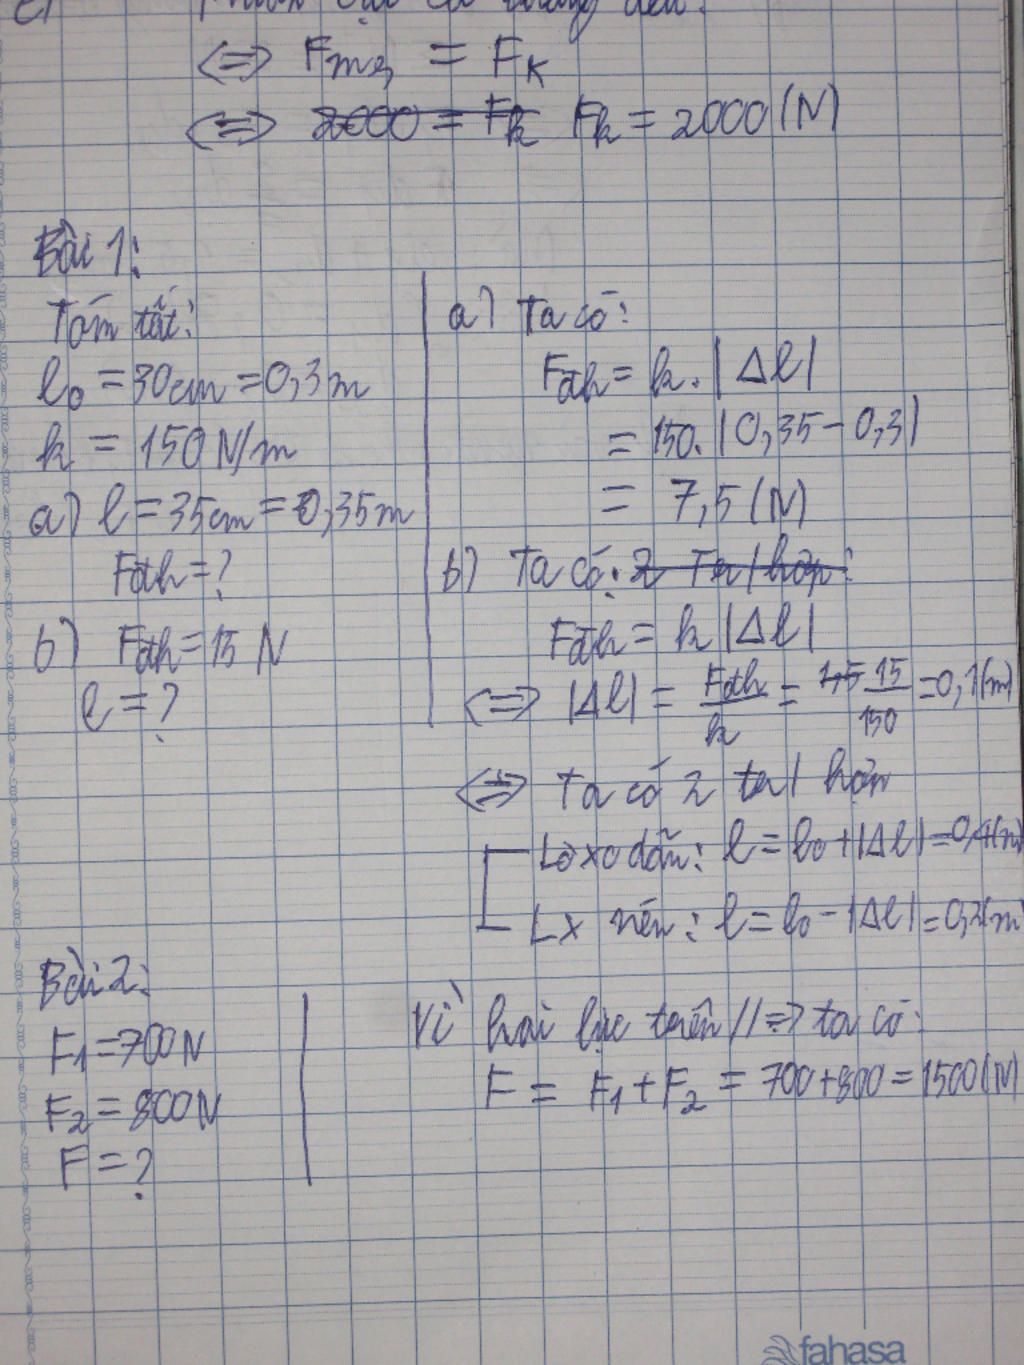 c)
⇔ Fms = Fk
⇔ 2000 = Fk Fk = 2000 (N)
Bài 1:
Tóm tắt:
l₀ = 30cm = 0,3m
k = 150 N/m
a) l = 35cm = 0,35m
Fđh = ?
b) Fđh = 15 N
l = ?
a) Ta có:
Fđh = k. |Δl|
= 150. |0,35 - 0,3|
= 7,5 (N)
b) Ta có: 2 Ta/hợp:
Fđh = k |Δl|
⇔ |Δl| = Fđh/k = 1,5 15/150 = 0,1(m)
⇔ Ta có 2 ta/ hợp
Lò xo dãn: l = l₀ + |Δl| = 0,4(m)
Lx nén: l = l₀ - |Δl| = 0,2(m)
Bài 2:
F₁ = 700N
F₂ = 800N
F = ?
Vì hai lực trên // => ta có:
F = F₁ + F₂ = 700 + 800 = 1500 (N)
fahasa